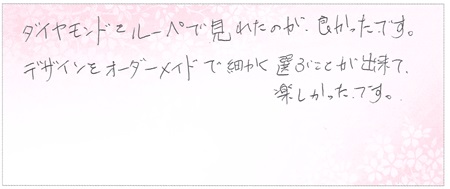 ダイヤモンドをルーペで見れたのが、良かったです。
デザインをオーダーメイドで細かく選ぶことが出来て、
楽しかったです。